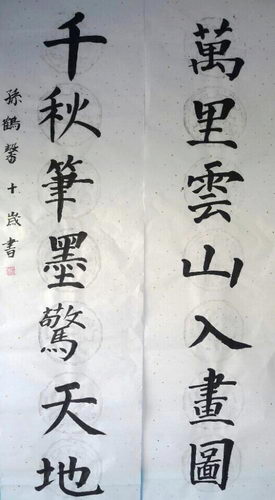 萬里雲山入畫圖
千秋筆墨驚天地
孫鶴馨十歲書